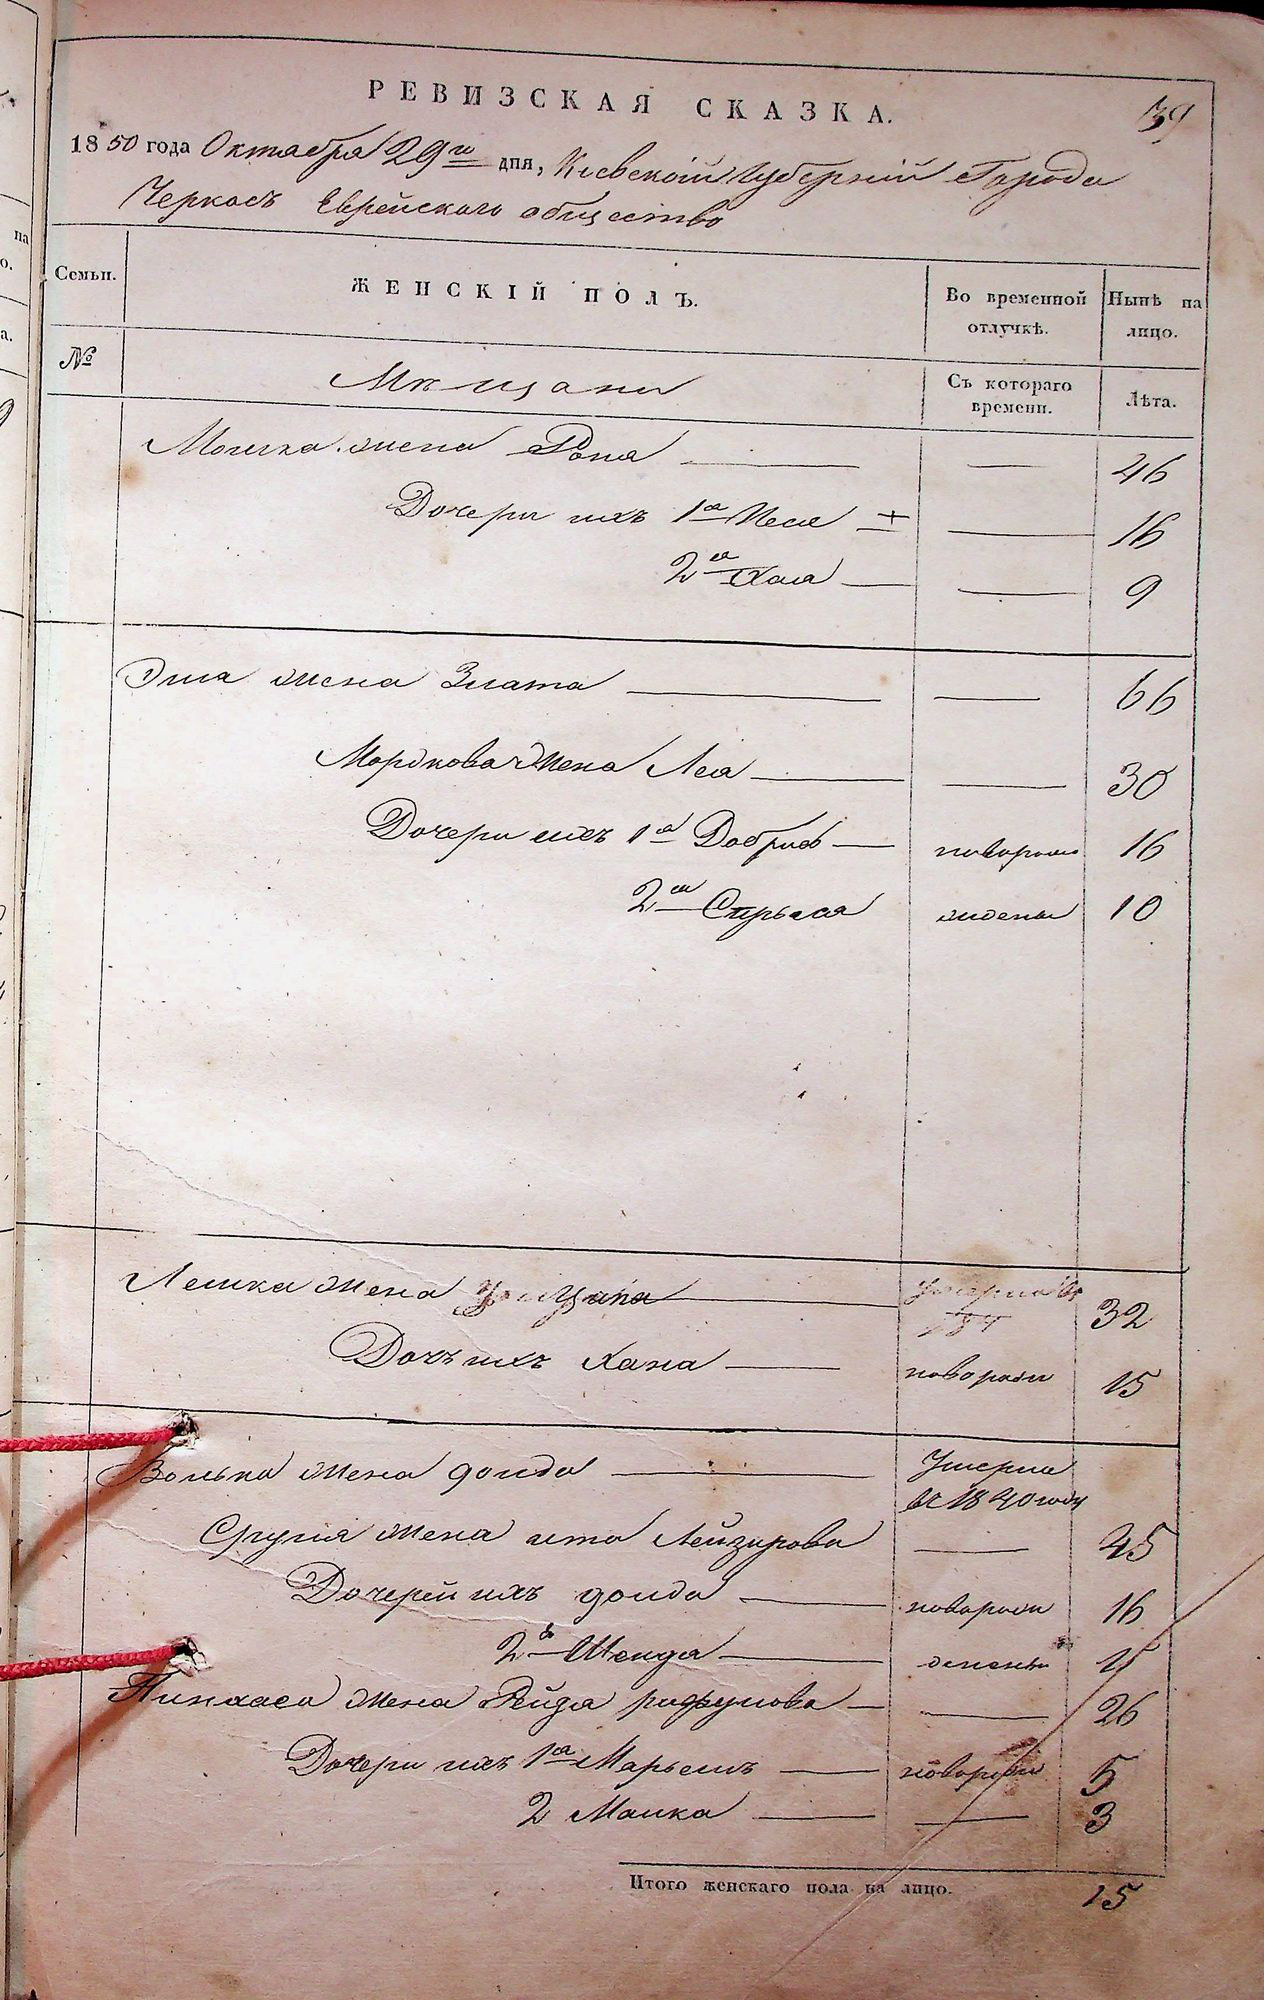 39
РЕВИЗСКАЯ СКАЗКА.
1850 года Октября 29го дня, Киевской Губерній Города
Черкасъ Еврейского общество
Семьи. ЖЕНСКІЙ ПОЛЪ. Во временной отлучкѣ. Нынѣ на лицо.
№ Мѣщане Съ котораго времени. Лѣта.
Мошка жена Роня — — 46
Дочери ихъ 1я Песя — 16
2я Хая — — 9
жена Злата — — 66
Мордкова жена Лея — — 30
Дочери ихъ 1я Добриш — новорожд 16
2я 10
Лешка жена Ципа 32
Дочь ихъ Хана — новорожд 15
Волька жена — Умерла
въ 1840 году
Сруля жена Лейзерова — 45
Дочерей ихъ — новорожд 16
2я Шенда —
Пинхаса жена Рейза — — 26
Дочери ихъ 1я Марьемъ — новорожд 5
2 Малка — — 3
Итого женскаго пола на лицо. 15